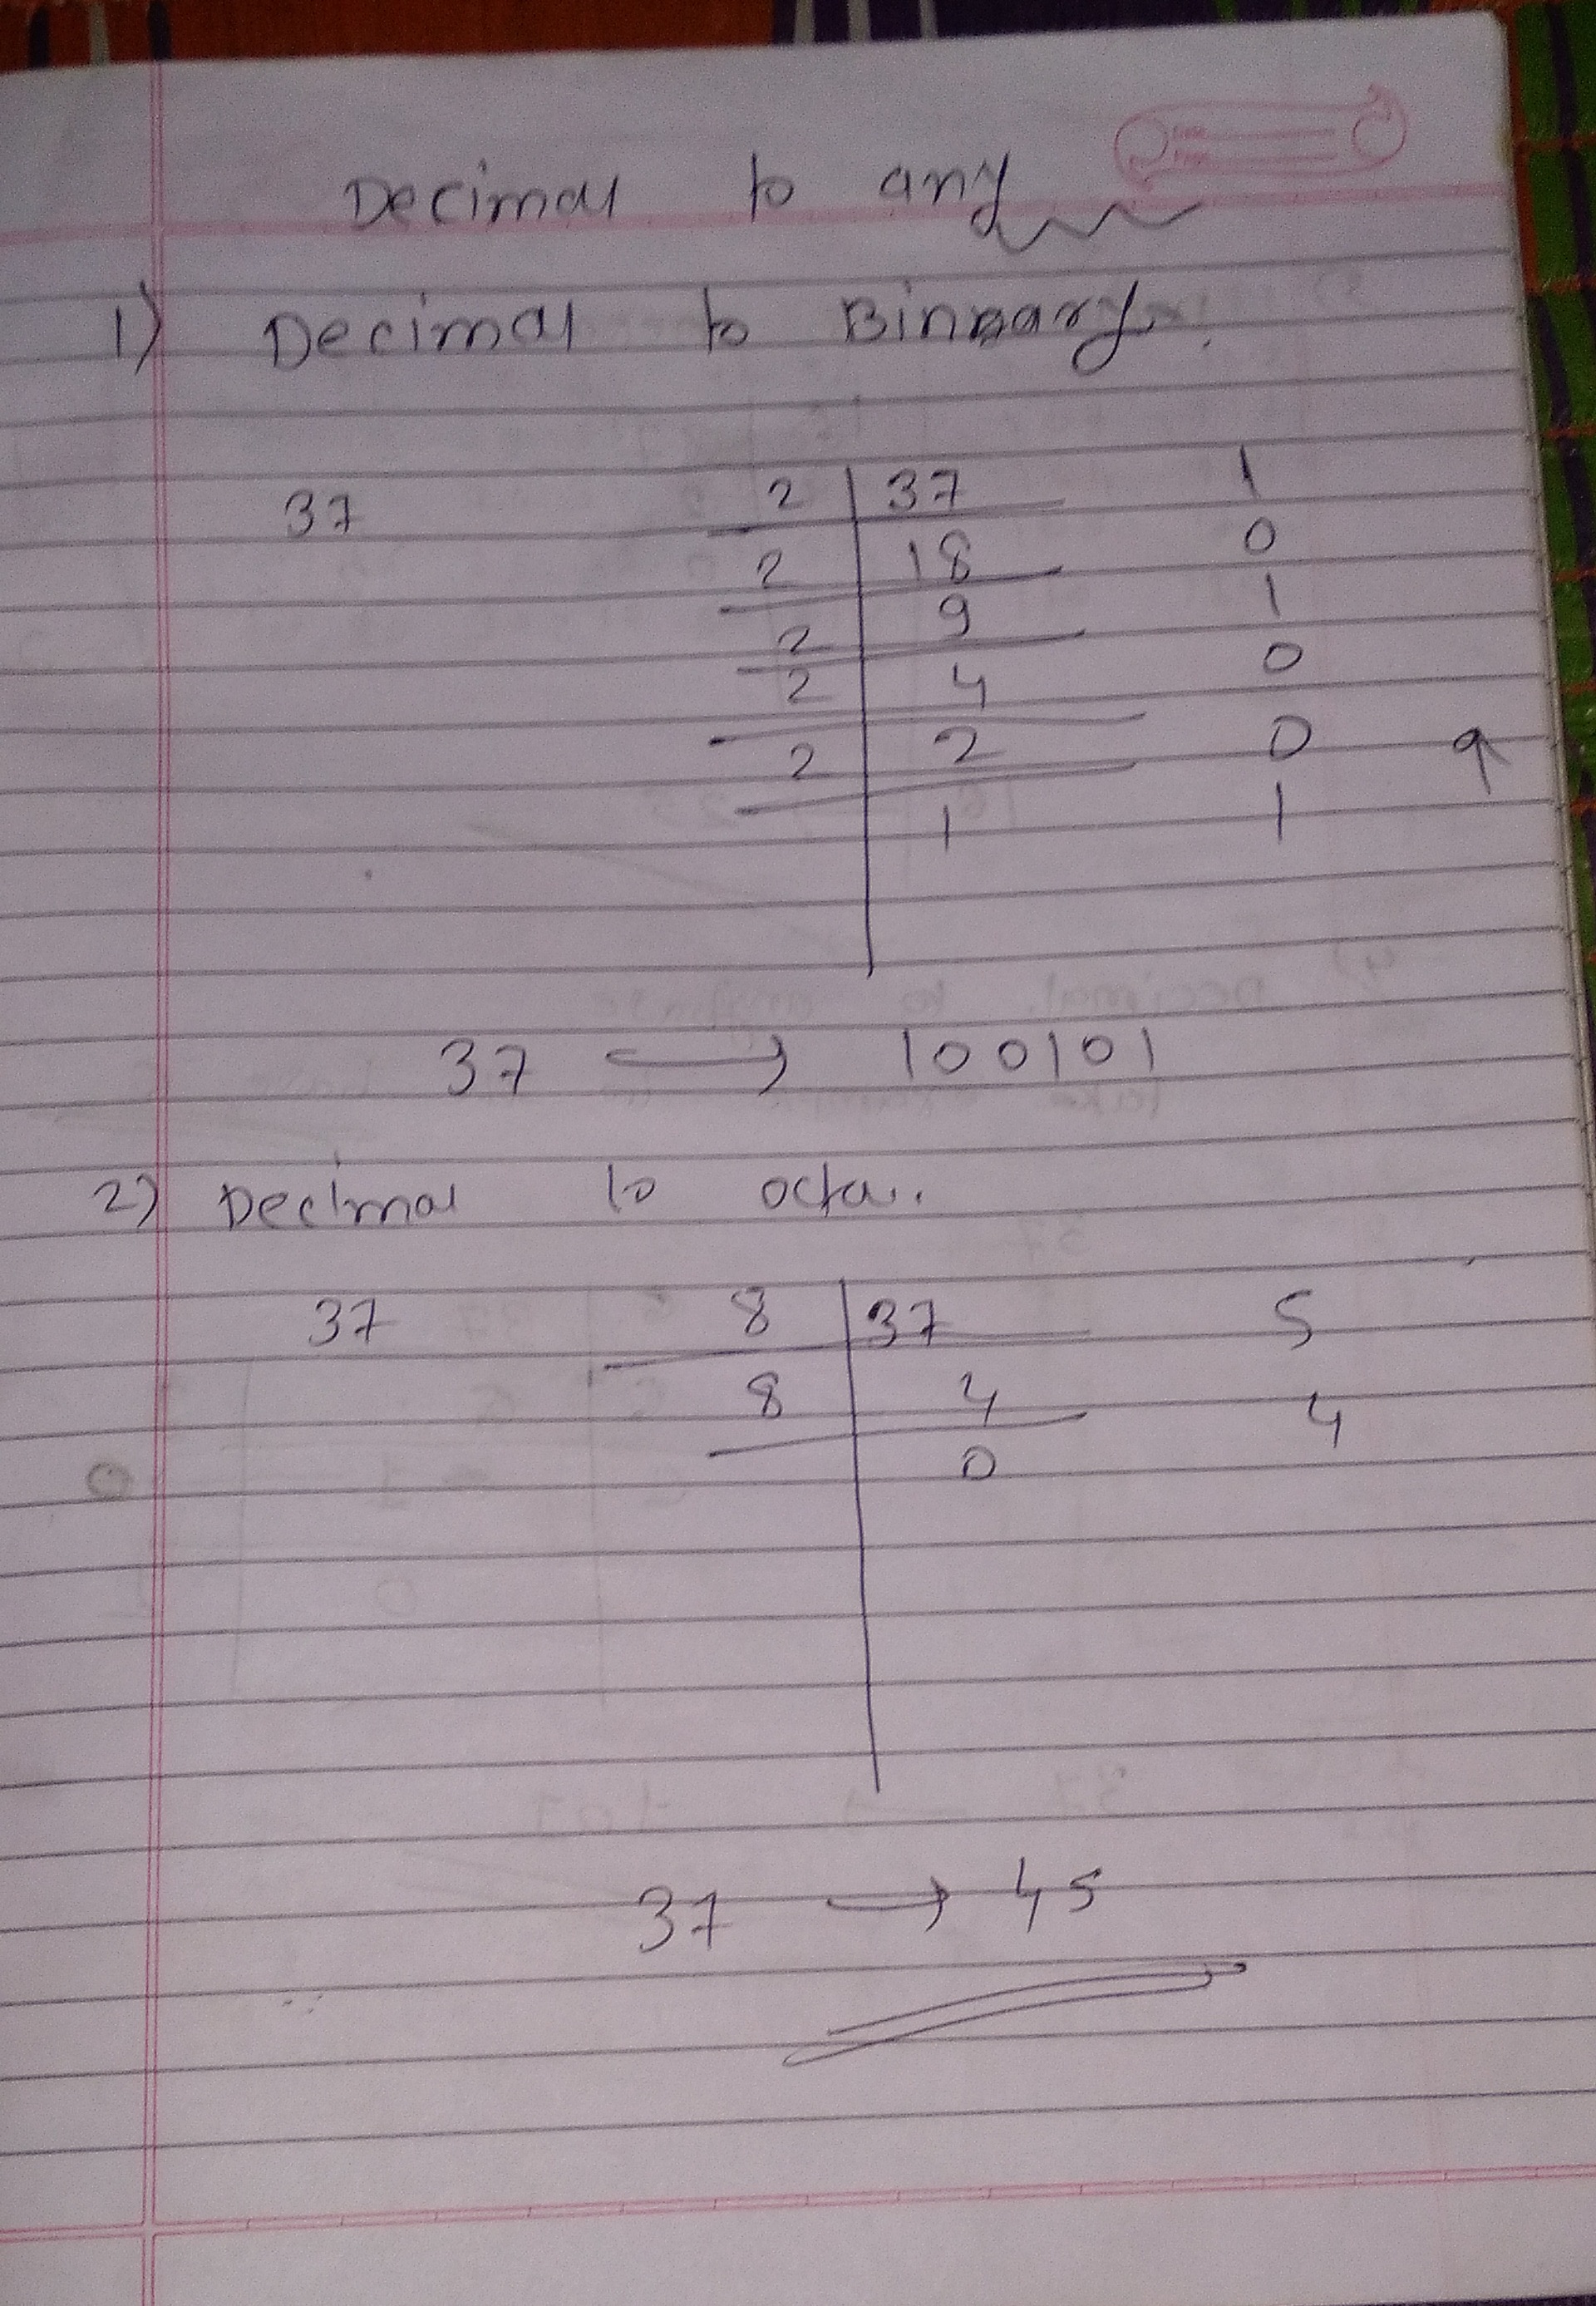 Decimal to any
1) Decimal to Binary.
37 2 37 1
2 18 0
2 9 1
2 4 0
2 2 0
1 1
37 → 100101
2) Decimal to octa.
37 8 37 5
8 4 4
0
37 → 45